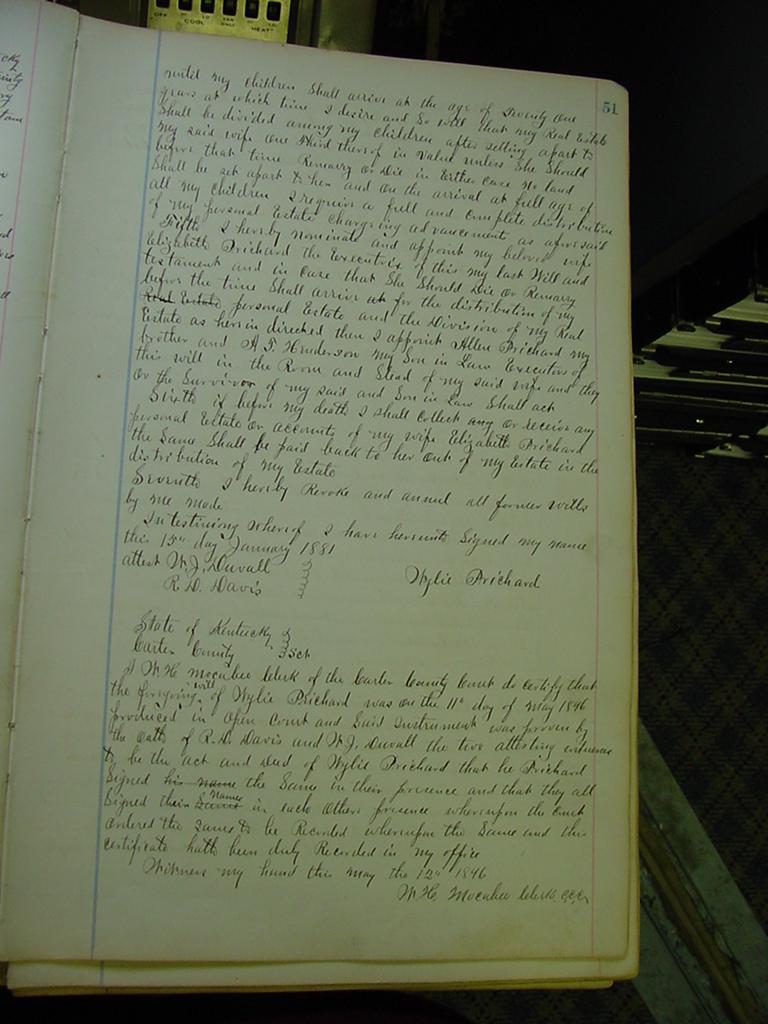 OFF LO COOL FAN ONLY LO HEAT
51
until my children Shall arrive at the age of Twenty One
years at which time I desire and So will that my Real Estate
Shall be divided among my children after setting apart to
my said wife One Third thereof in value unless She Should
before that time Remarry or Die in Either case no land
Shall be set apart to her and on the arrival at full age of
all my children I require a full and complete distribution
of my personal Estate charging advancements as aforesaid
Fifth I hereby nominate and appoint my beloved wife
Elizabeth Prichard the Executrix of this my last Will and
testament and in case that She Should Die or Remarry
before the time Shall arrive at for the distribution of my
Real Estate personal Estate and the Division of my Real
Estate as herein directed then I appoint Allen Prichard my
brother and A. F. Henderson my Son in Law Executors of
this will in the Room and Stead of my said wife and they
or the Survivor of my said and Son in Law Shall act
Sixth if before my death I shall collect any or receive any
personal Estate or accounts of my wife Elizabeth Prichard
the Same Shall be paid back to her out of my Estate in the
distribution of my Estate
Seventh I hereby Revoke and annul all former wills
by me made
In testimony whereof I have hereunto Signed my name
this 15th day January 1881
attest W. J. Duvall
Wylie Prichard
R. D. Davis
State of Kentucky
Carter County Sct
I W. H. Mocabee Clerk of the Carter County Court do certify that
the foregoing will of Wylie Prichard was on the 11th day of May 1896
produced in Open Court and Said Instrument was proven by
the Oaths of R. D. Davis and W. J. Duvall the two attesting witnesses
to be the act and deed of Wylie Prichard that he Prichard
Signed his name the Same in their presence and that they all
Signed their names in each others presence whereupon the Court
ordered the same to be Recorded whereupon the Same and this
certificate hath been duly Recorded in my office
Witness my hand this May the 12th 1896
W. H. Mocabee Clerk C.C.C.